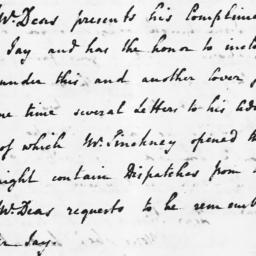 Mr. Deas presents his Complime
Jay and has the honor to inclo
under this and another Cover
me time several Letters to his
of which Mr. Pinckney opened th
ight contain Dispatches from
Mr. Deas requests to be rememb
Jay.